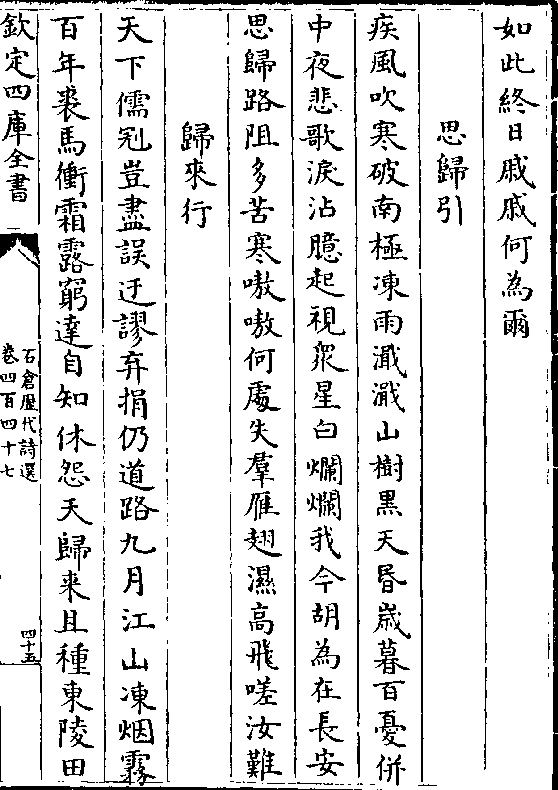 如此終日戚戚何為爾
思歸引
疾風吹寒破南極凍雨濺濺山樹黑天昬嵗暮百憂併
中夜悲歌淚沾臆起視衆星白爛爛我今胡為在長安
思歸路阻多苦寒嗷嗷何處失羣雁翅濕高飛嗟汝難
歸來行
天下儒冠豈盡誤迂謬弃捐仍道路九月江山凍烟霧
百年裘馬衝霜露窮達自知休怨天歸来且種東陵田
欽定四庫全書
石倉歴代詩選
卷四百四十七
四十五